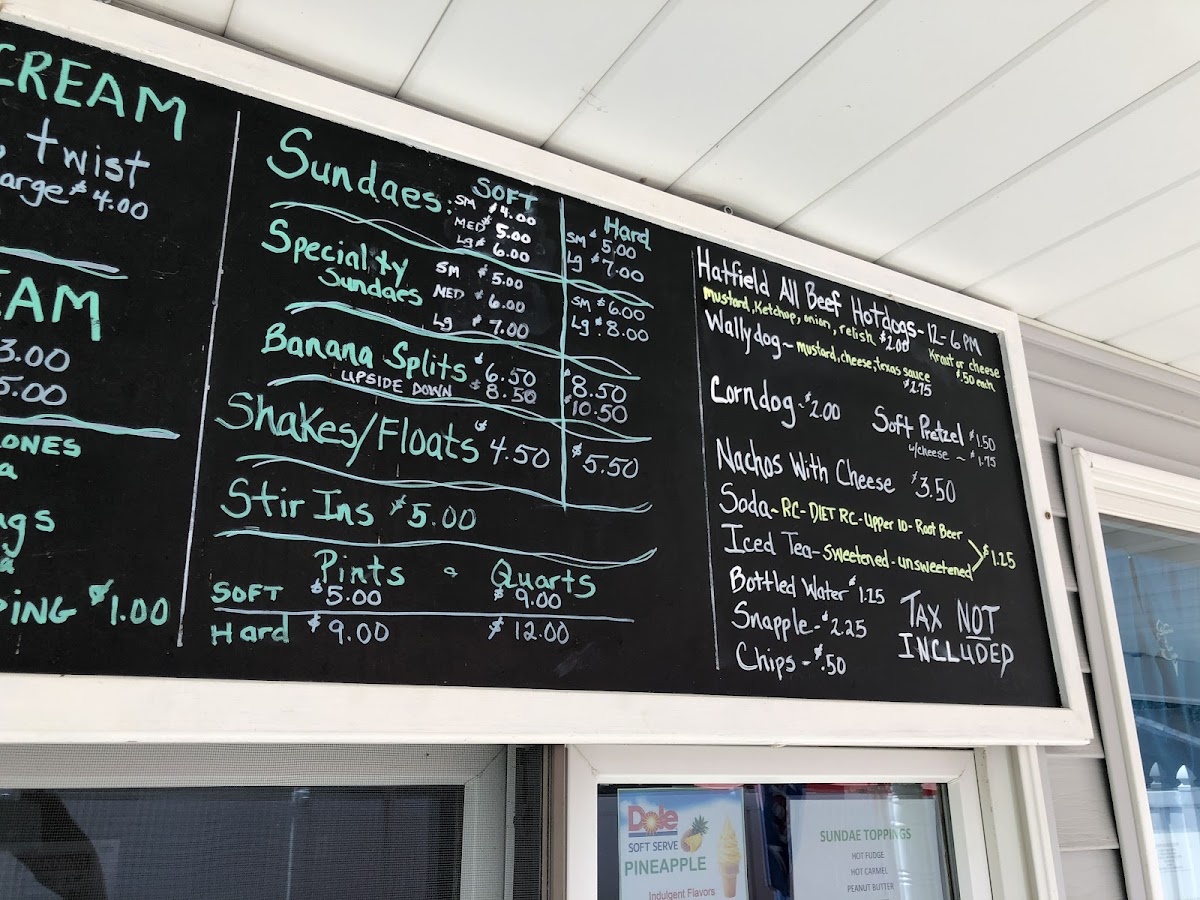 CREAM
twist
arge $4.00
EAM
3.00
5.00
ONES
a
ngs
a
PING $1.00
Sundaes
SOFT
Hard
SM $4.00
MED $5.00
Lg $6.00
SM $5.00
Lg $7.00
Specialty
Sundaes
SM $5.00
MED $6.00
Lg $7.00
SM $6.00
Lg $8.00
Banana Splits $6.50 $8.50
UPSIDE DOWN $8.50 $10.50
Shakes/Floats $4.50 $5.50
Stir Ins $5.00
Pints - Quarts
SOFT $5.00 $9.00
Hard $9.00 $12.00
Hatfield All Beef Hotdogs - 12-6 PM
mustard, Ketchup, onion, relish $2.00
Kraut or cheese
$.50 each
Wallydog - mustard, cheese, texas sauce
$2.75
Corndog - $2.00
Soft Pretzel $1.50
w/cheese - $1.75
Nachos With Cheese $3.50
Soda - RC - DIET RC - Upper 10 - Root Beer
Iced Tea - Sweetened - unsweetened
$1.25
Bottled Water $1.25
Snapple - $2.25
Chips - $.50
TAX NOT
INCLUDED
Dole
SOFT SERVE
PINEAPPLE
Indulgent Flavors
SUNDAE TOPPINGS
HOT FUDGE
HOT CARMEL
PEANUT BUTTER